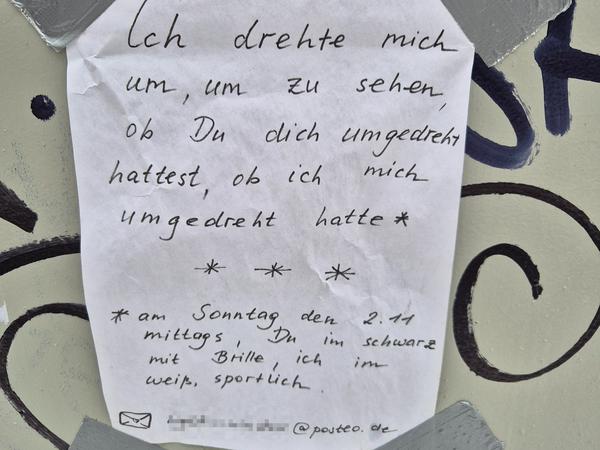 Ich drehte mich
um, um zu sehen,
ob Du dich umgedreht
hattest, ob ich mich
umgedreht hatte *
* * *
* am Sonntag den 2.11
mittags, Du im schwarz
mit Brille, ich im
weiß, sportlich.
@posteo.de